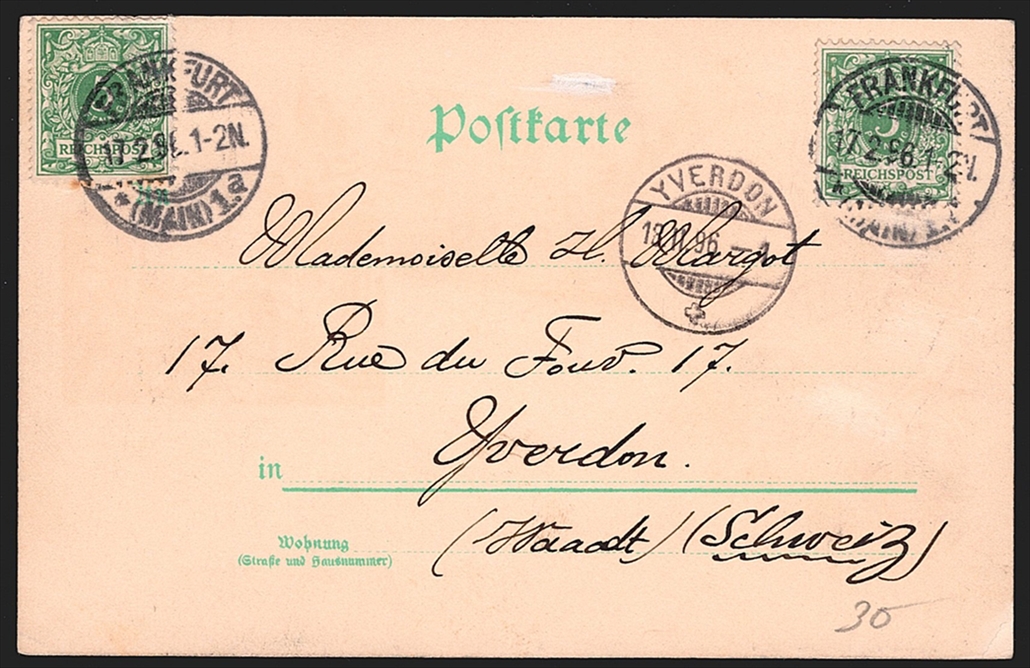 REICHSPOST
FRANKFURT
17.2.96.1-2N.
* (MAIN) 1.a
Postkarte
5
REICHSPOST
FRANKFURT
17.2.96.1-2N.
* (MAIN) 1.
YVERDON
96
Mademoiselle H. Margot
17. Rue du Four. 17.
in Yverdon.
(Waadt) (Schweiz)
Wohnung
(Straße und Hausnummer)
30